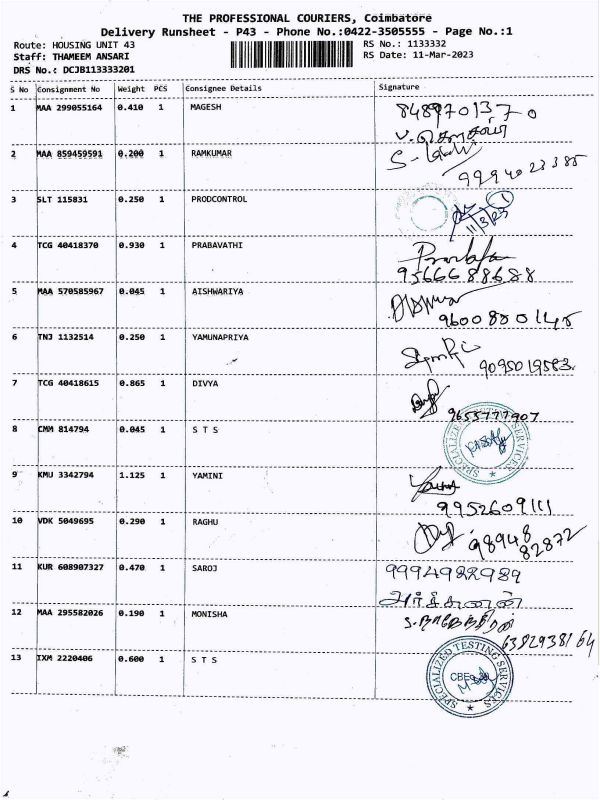 THE PROFESSIONAL COURIERS, Coimbatore
Delivery Runsheet - P43 - Phone No.:0422-3505555 - Page No.:1
Route: HOUSING UNIT 43 RS No.: 1133332
Staff: THAMEEM ANSARI RS Date: 11-Mar-2023
DRS No.: DCJB113333201
S No Consignment No Weight PCS Consignee Details Signature
1 MAA 299055164 0.410 1 MAGESH 8489701370
2 MAA 859459591 0.200 1 RAMKUMAR 9994023385
3 SLT 115831 0.250 1 PRODCONTROL 11/3/23
4 TCG 40418370 0.930 1 PRABAVATHI
9566688688
5 MAA 570585967 0.045 1 AISHWARIYA
9600880145
6 TNJ 1132514 0.250 1 YAMUNAPRIYA
9095019583
7 TCG 40418615 0.865 1 DIVYA
9655777907
8 CMM 814794 0.045 1 S T S SPECIALIZED TESTING SERVICES
9 KMU 3342794 1.125 1 YAMINI
9952609111
10 VDK 5049695 0.290 1 RAGHU 98948
82872
11 KUR 608907327 0.470 1 SAROJ 9994922989
12 MAA 295582026 0.190 1 MONISHA
6382938164
13 IXM 2220406 0.600 1 S T S SPECIALIZED TESTING SERVICES
CBE